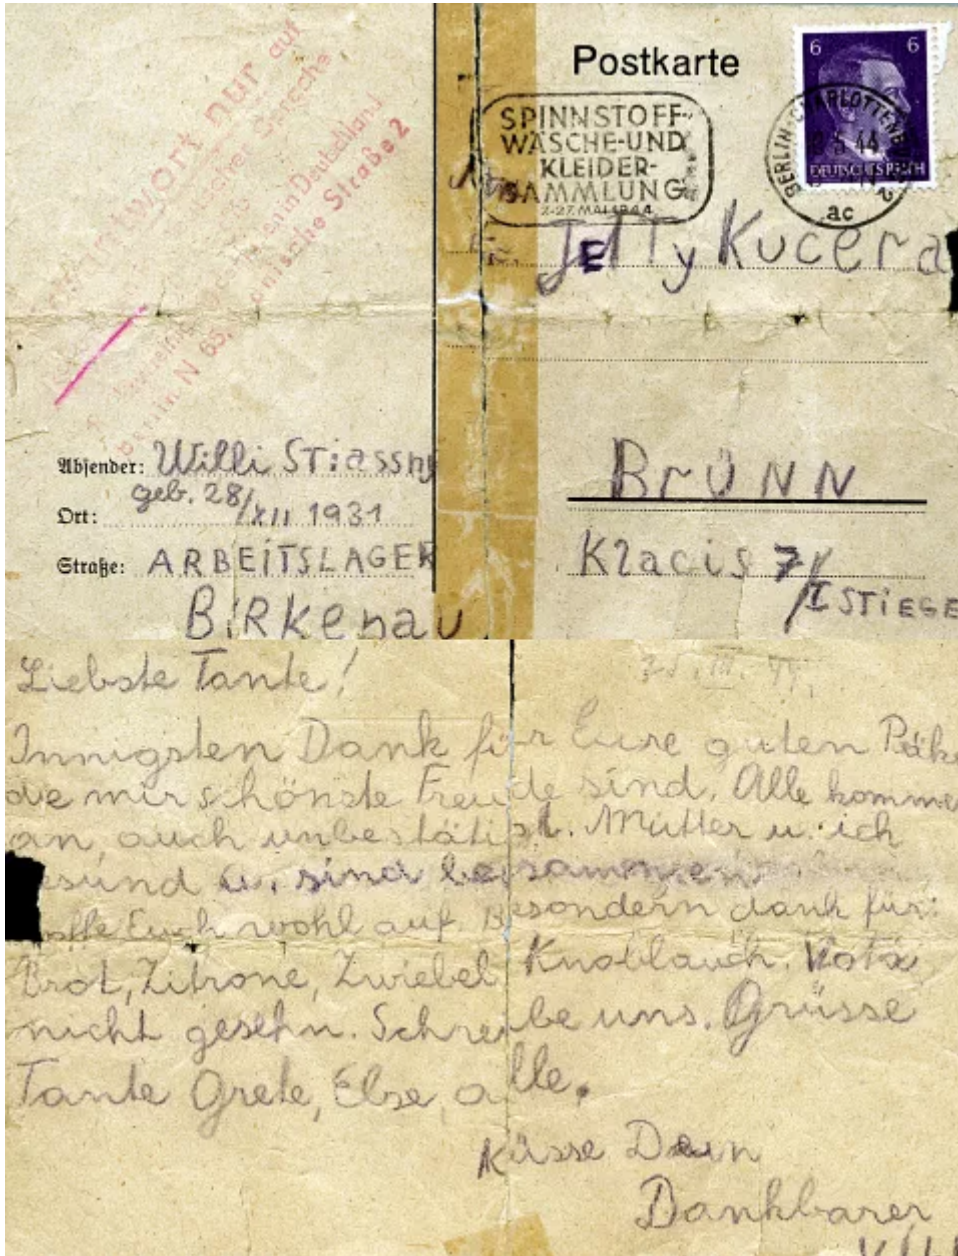 Postkarte
6 6
DEUTSCHES REICH
BERLIN-CHARLOTTENB 2
5.44
ac
SPINNSTOFF-
WÄSCHE-UND
KLEIDER-
SAMMLUNG
7.-27. MAI 1944
nur auf
in Deutschland
Straße 2
Berlin N 65,
Fr. JElly Kucera
BrÜNN
Klacis 7/
I STiEGE
Absender: Willi STiassny
geb. 28/XII 1931
Ort:
Straße: ARBEITSLAGER
BiRKenau
Liebste Tante!
III. 44.
Innigsten Dank für Eure guten Päk
die mir schönste Freude sind. Alle komme
an, auch unbestätigt. Mutter u. ich
esund u. sind beisammen
offe Euch wohl auf. Besondern dank für:
Brot, Zitrone, Zwiebel, Knoblauch.
nicht gesehn. Schreibe uns. Grüsse
Tante Grete, Else, alle.
Küsse Dein
Dankbarer